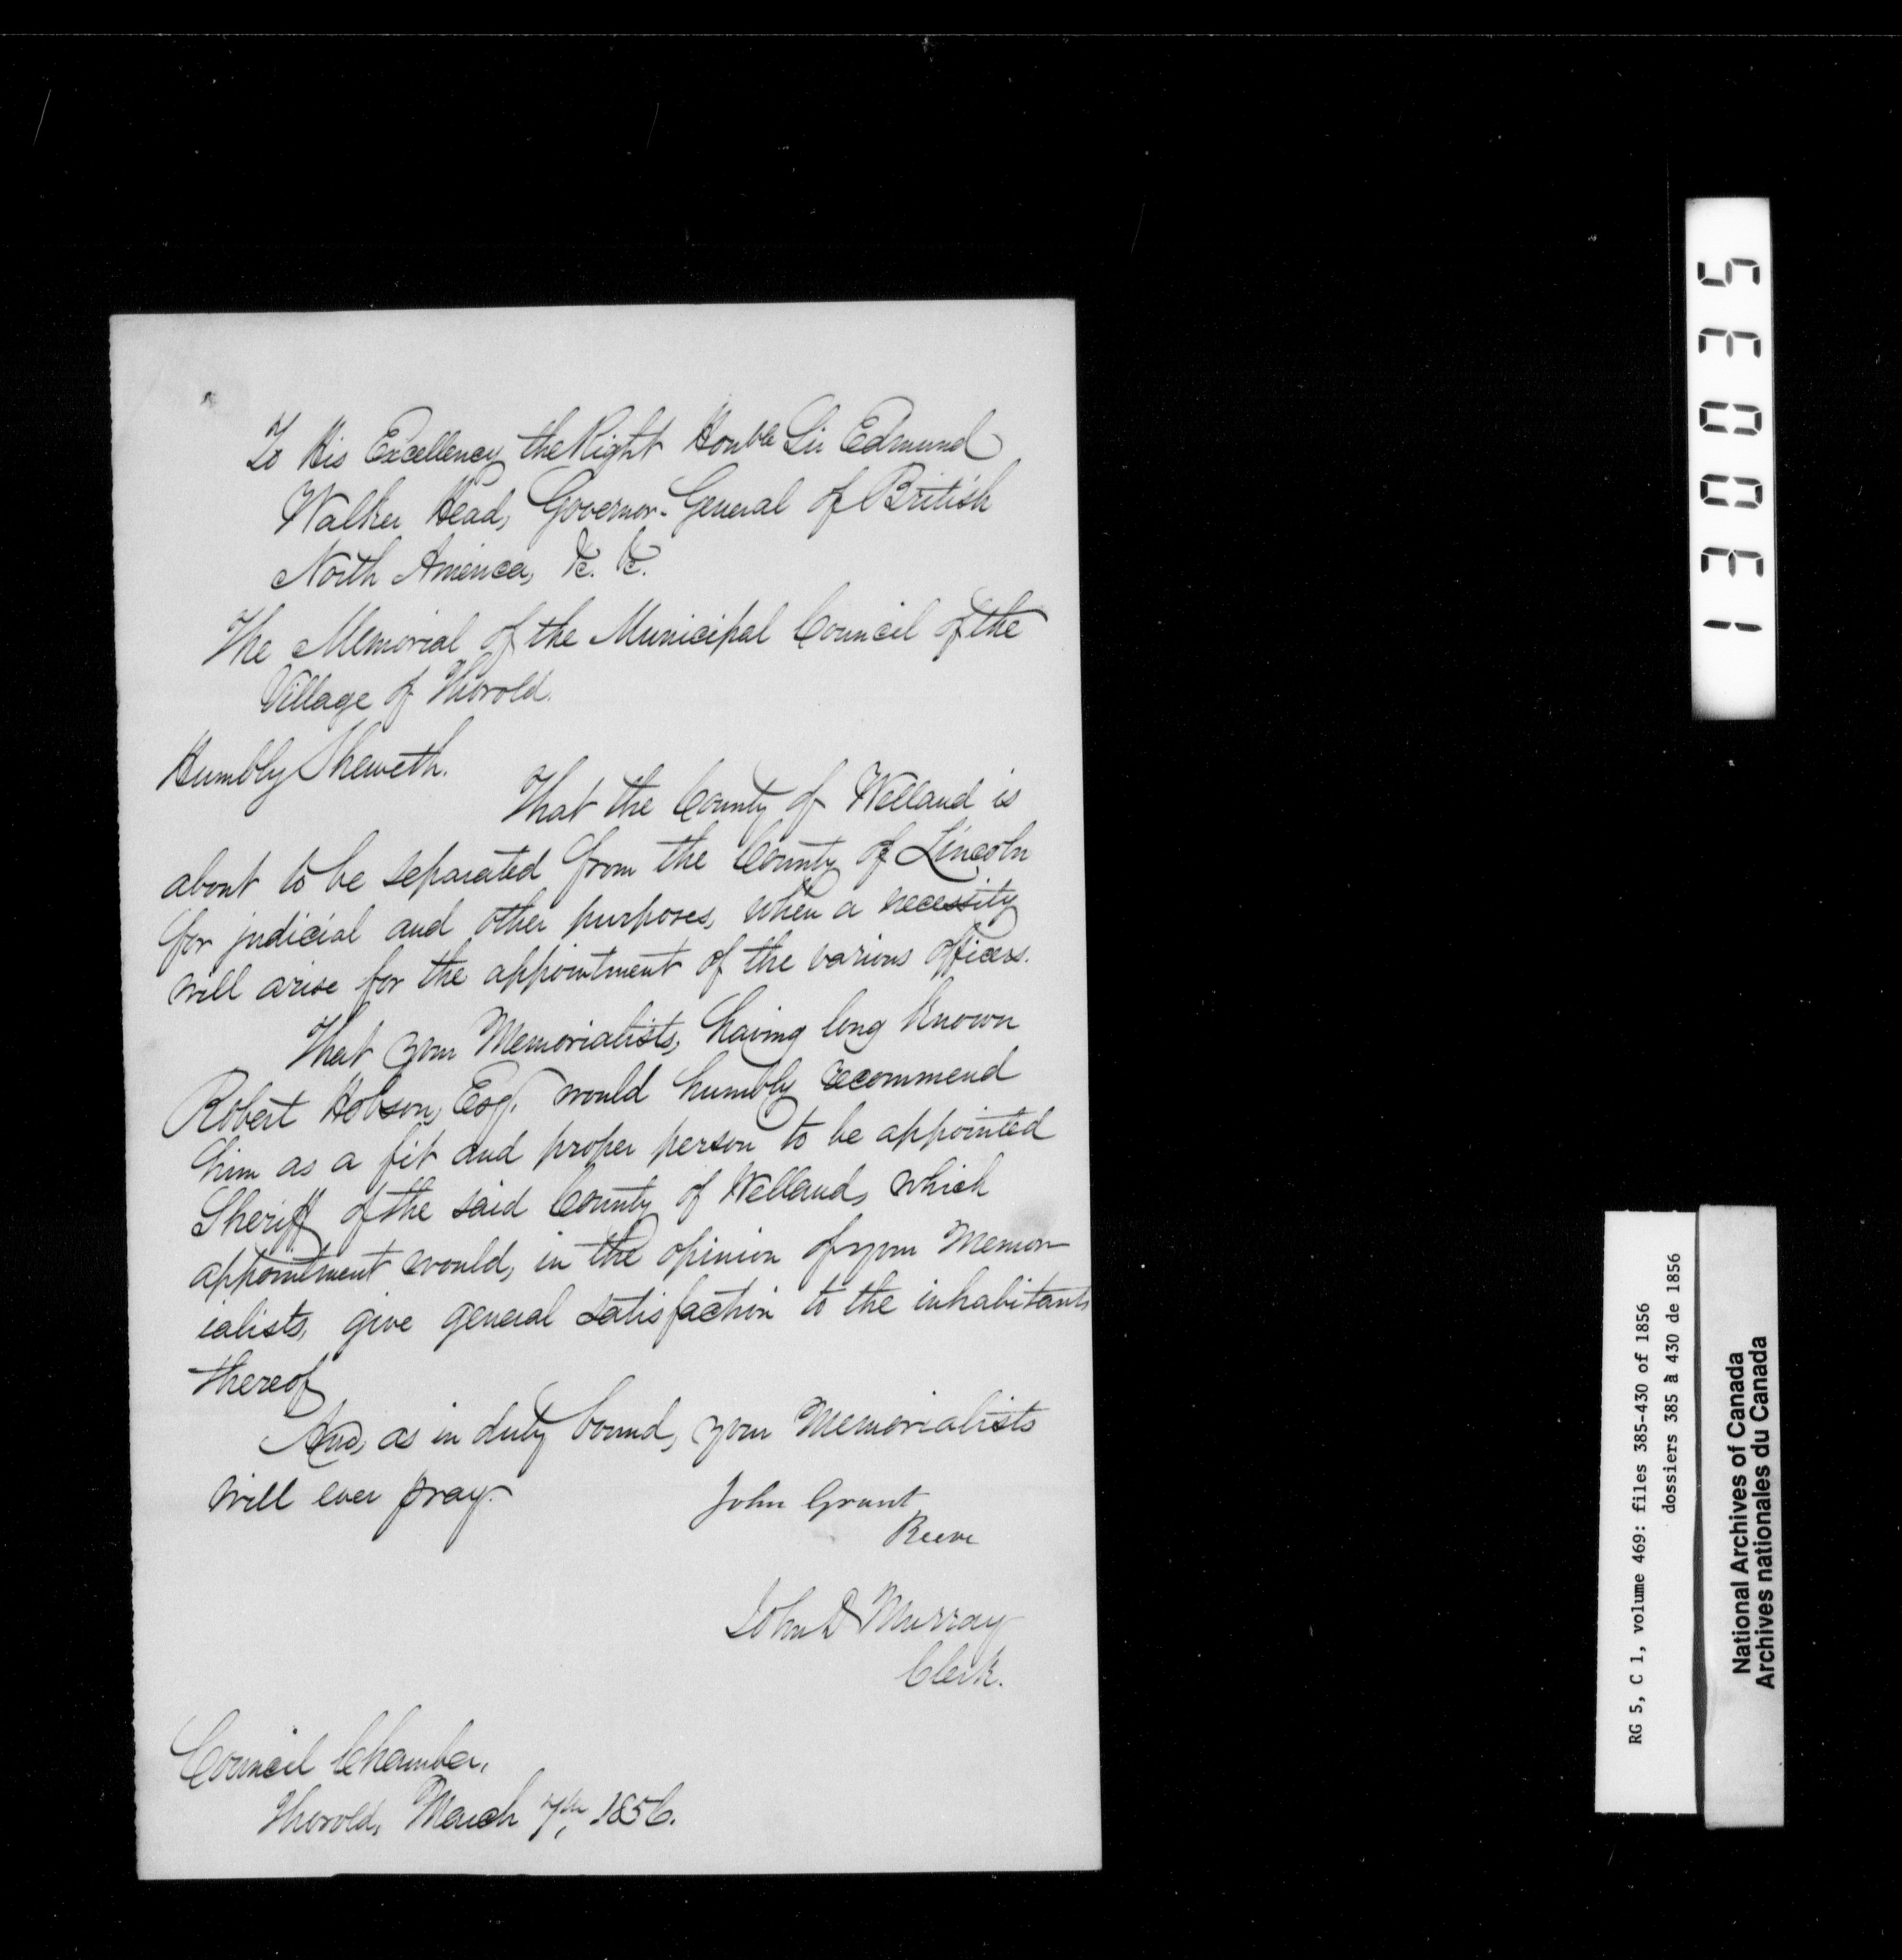 To His Excellency the Right Honble Sir Edmund
Walker Head, Governor-General of British
North America, &c. &c.
The Memorial of the Municipal Council of the
Village of Thorold.
Humbly Sheweth.
That the County of Welland is
about to be separated from the County of Lincoln
for judicial and other purposes, when a necessity
will arise for the appointment of the various officers.
That your Memorialists, having long known
Robert Hobson, Esq. would humbly recommend
him as a fit and proper person to be appointed
Sheriff of the said County of Welland, which
appointment would, in the opinion of your Memor-
ialists, give general satisfaction to the inhabitants
thereof
And, as in duty bound, your Memorialists
will ever pray.
John Grant
Reeve
John D Murray
Clerk.
Council Chamber,
Thorold, March 7th, 1856.
130035
RG 5, C 1, volume 469: files 385-430 of 1856
dossiers 385 à 430 de 1856
National Archives of Canada
Archives nationales du Canada